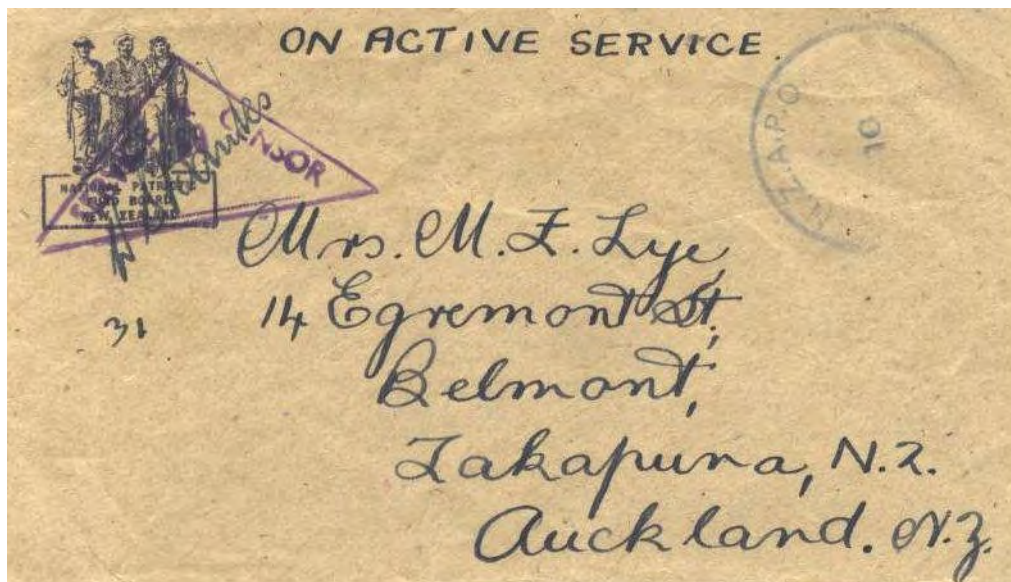 ON ACTIVE SERVICE.
N.Z.A.P.O.
10
CENSOR
NATIONAL PATRIOTIC
FUND BOARD
NEW ZEALAND
Mrs. M. F. Lye,
31
14 Egremont St,
Belmont,
Takapuna, N.Z.
Auckland. N.Z.